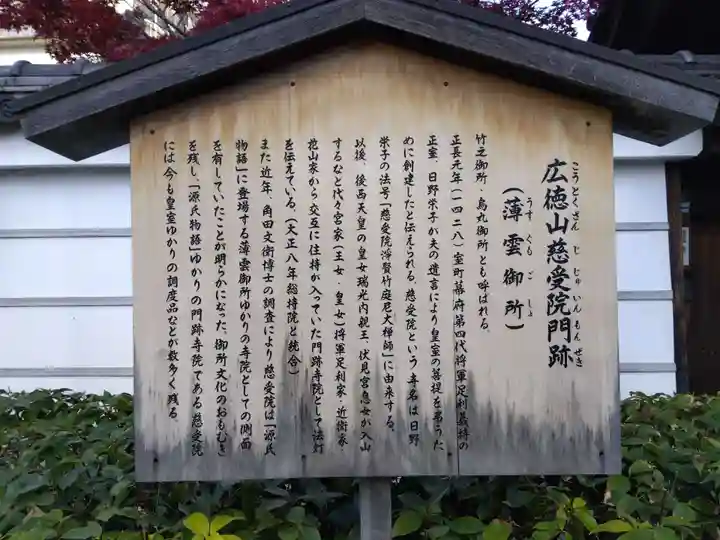 広徳山慈受院門跡
こうとくさん じ じゅ いん もん ぜき
(薄雲御所)
うす ぐも ご しょ
竹之御所・烏丸御所とも呼ばれる。
正長元年(一四二八)室町幕府第四代将軍足利義持の
正室、日野栄子が夫の遺言により皇室の菩提を弔うた
めに創建したと伝えられる。慈受院という寺名は日野
栄子の法号「慈受院浄賢竹庭尼大禅師」に由来する。
以後、後西天皇の皇女瑞光内親王、伏見宮息女が入山
するなど代々宮家(王女・皇女)将軍足利家・近衛家・
花山家から交互に住持が入っていた門跡寺院として法灯
を伝えている。(大正八年総持院と統合)
また近年、角田文衛博士の調査により慈受院は「源氏
物語」に登場する薄雲御所ゆかりの寺院としての側面
を有していたことが明らかになった。御所文化のおもむき
を残し、「源氏物語」ゆかりの門跡寺院である慈受院
には今も皇室ゆかりの調度品などが数多く残る。